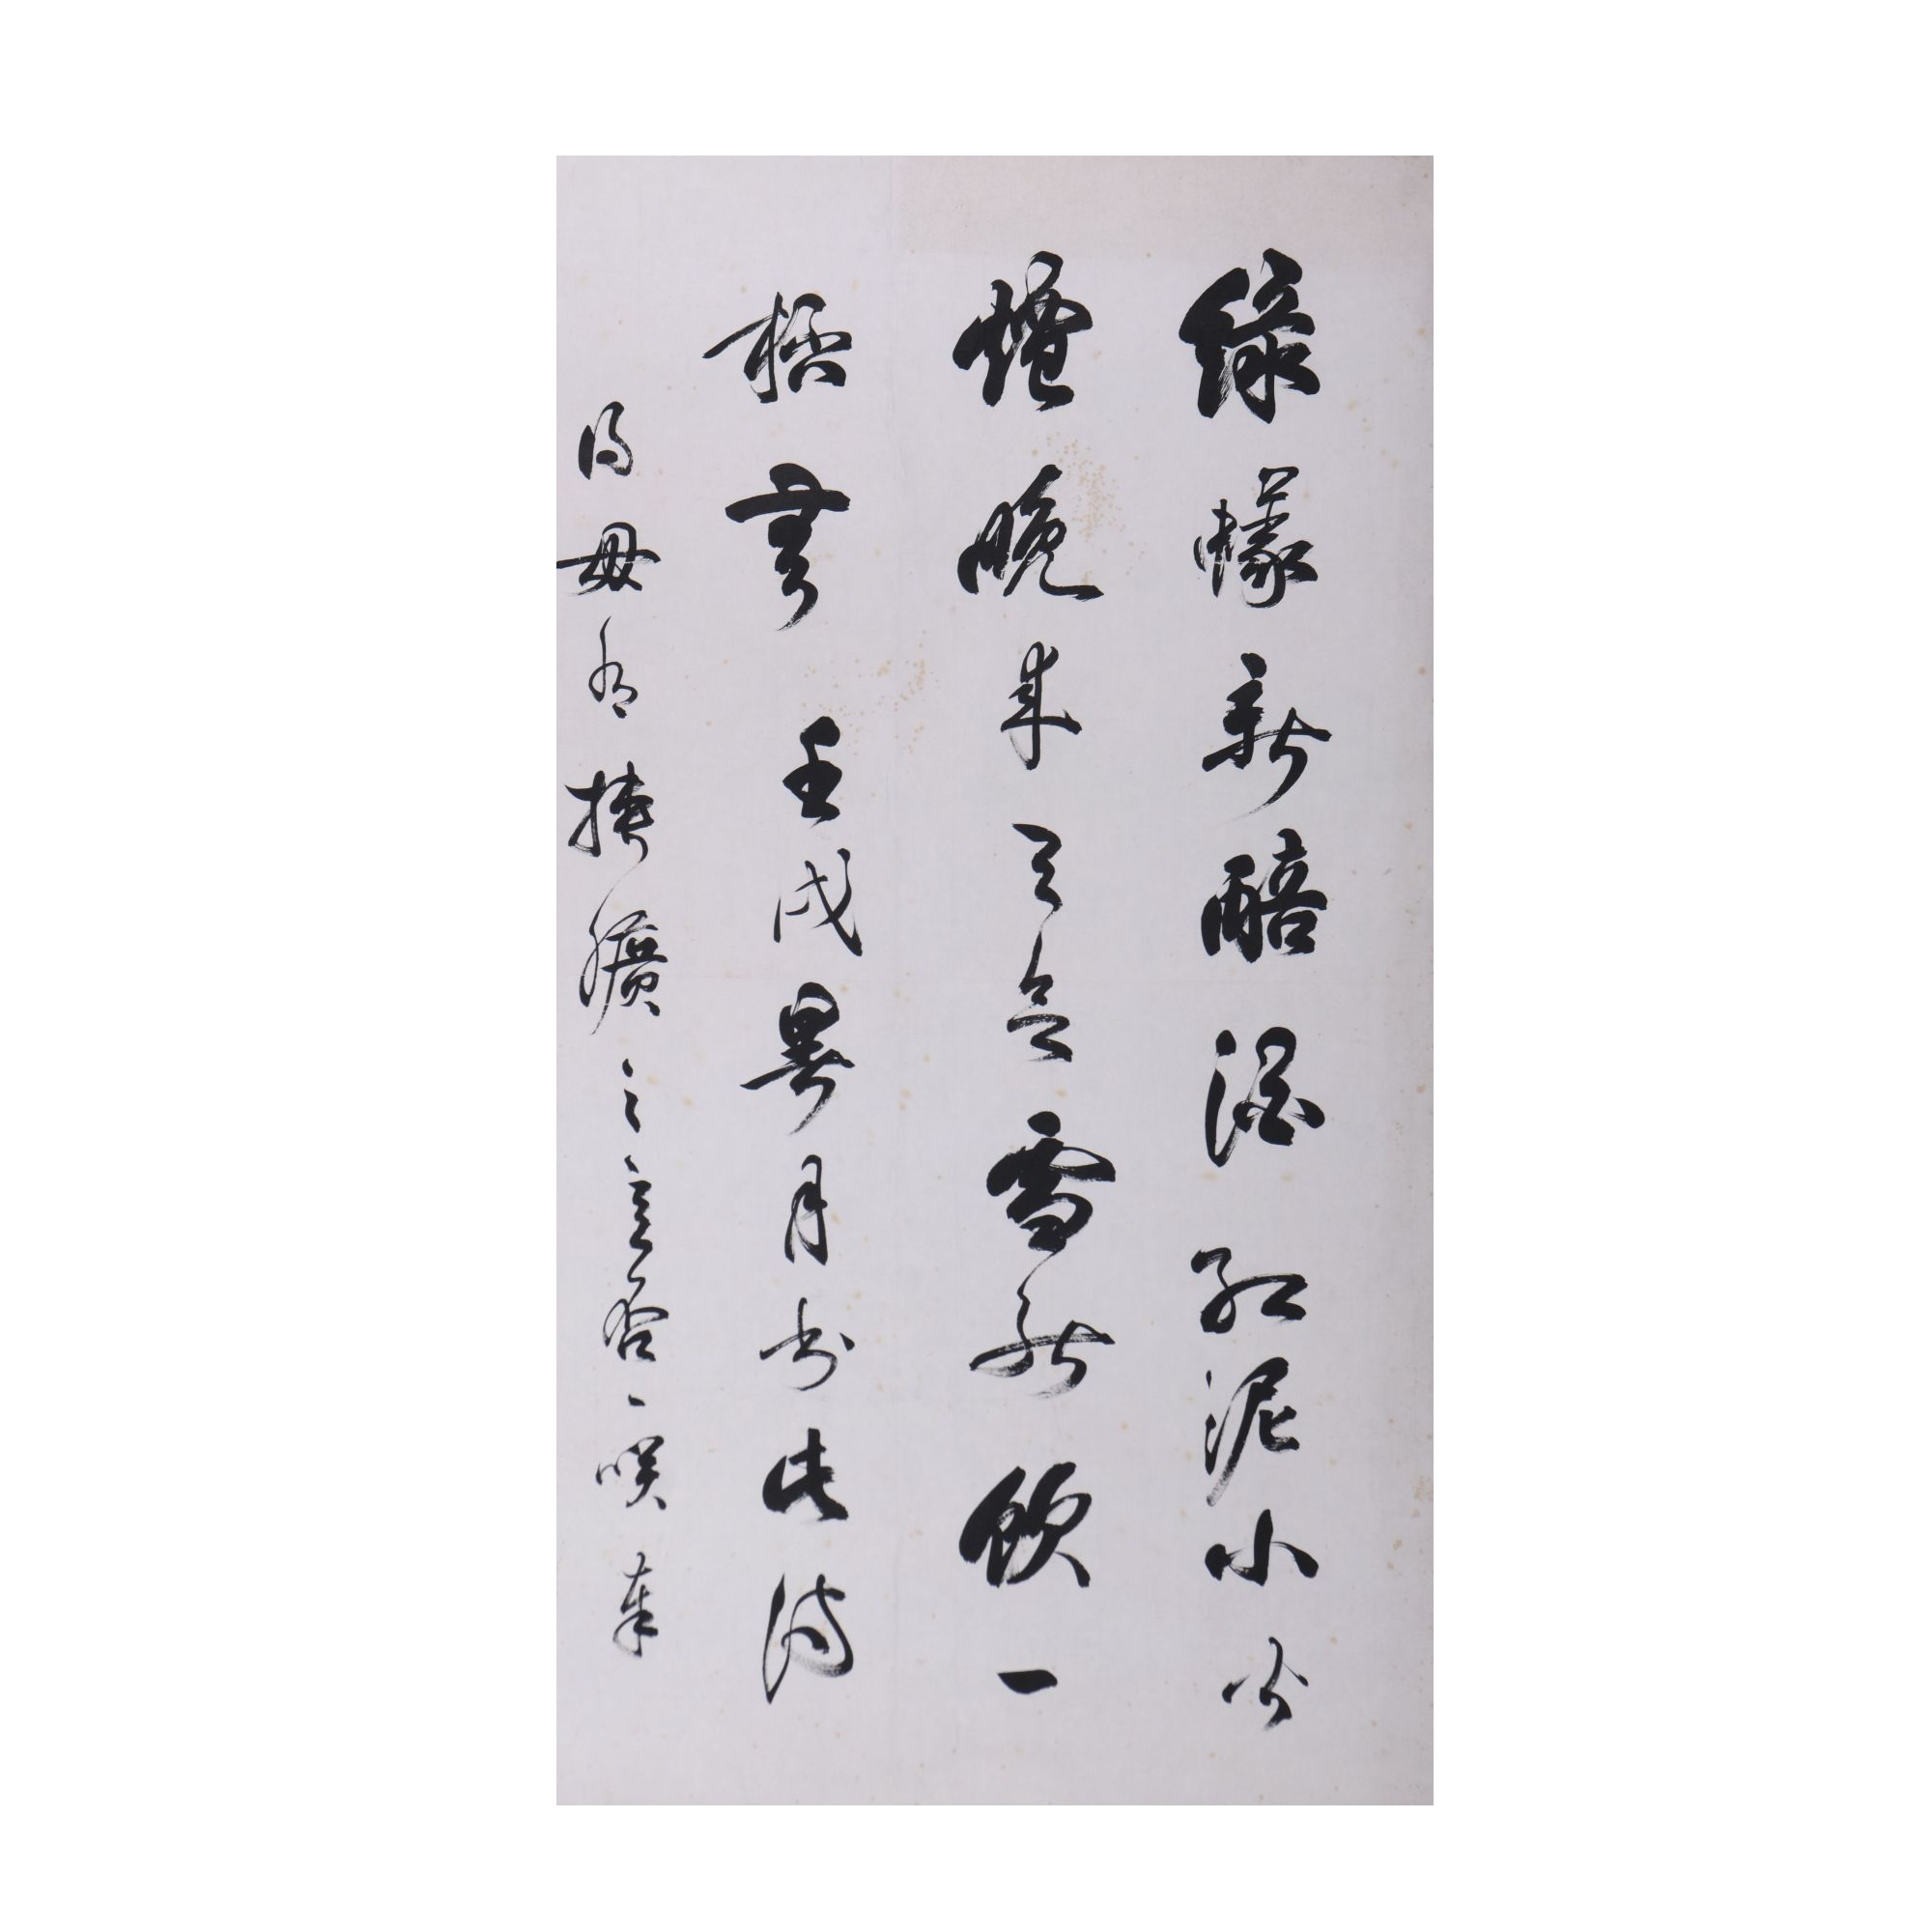 綠蟻新醅酒紅泥小火
爐晚來天欲雪能飲一
杯無 壬戌暑月書此詩
得毋有挾纊之意否一咲奉